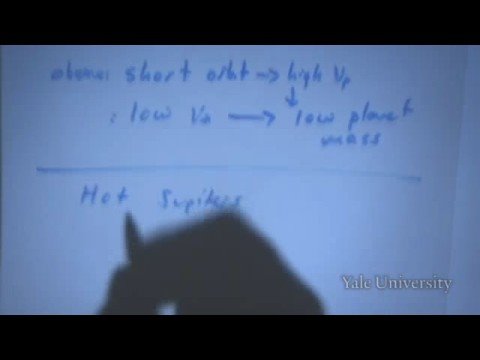 short orbit → high Vp
: low V* → low planet
mass
Hot Jupiters
Yale University